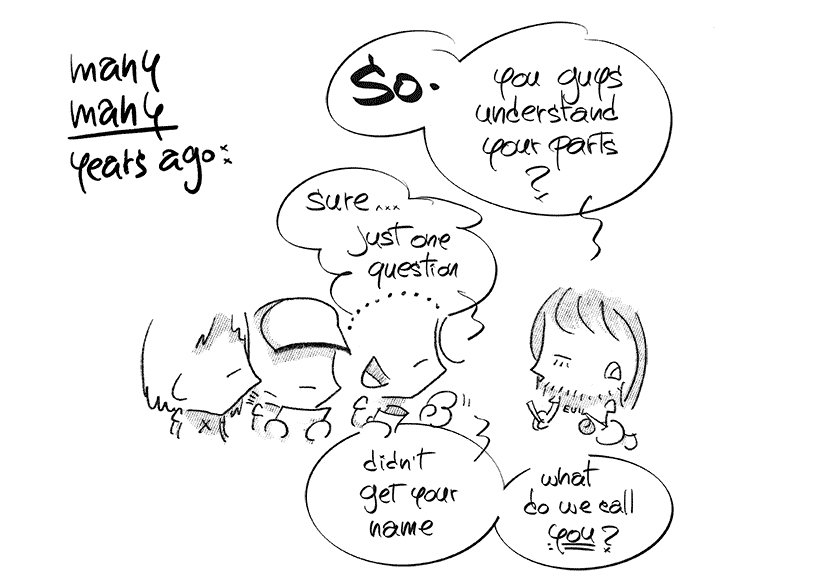 many
many
years ago:
So.
you guys
understand
your parts
?
sure...
just one
question
EVIL
didn't
get your
name
what
do we call
you?